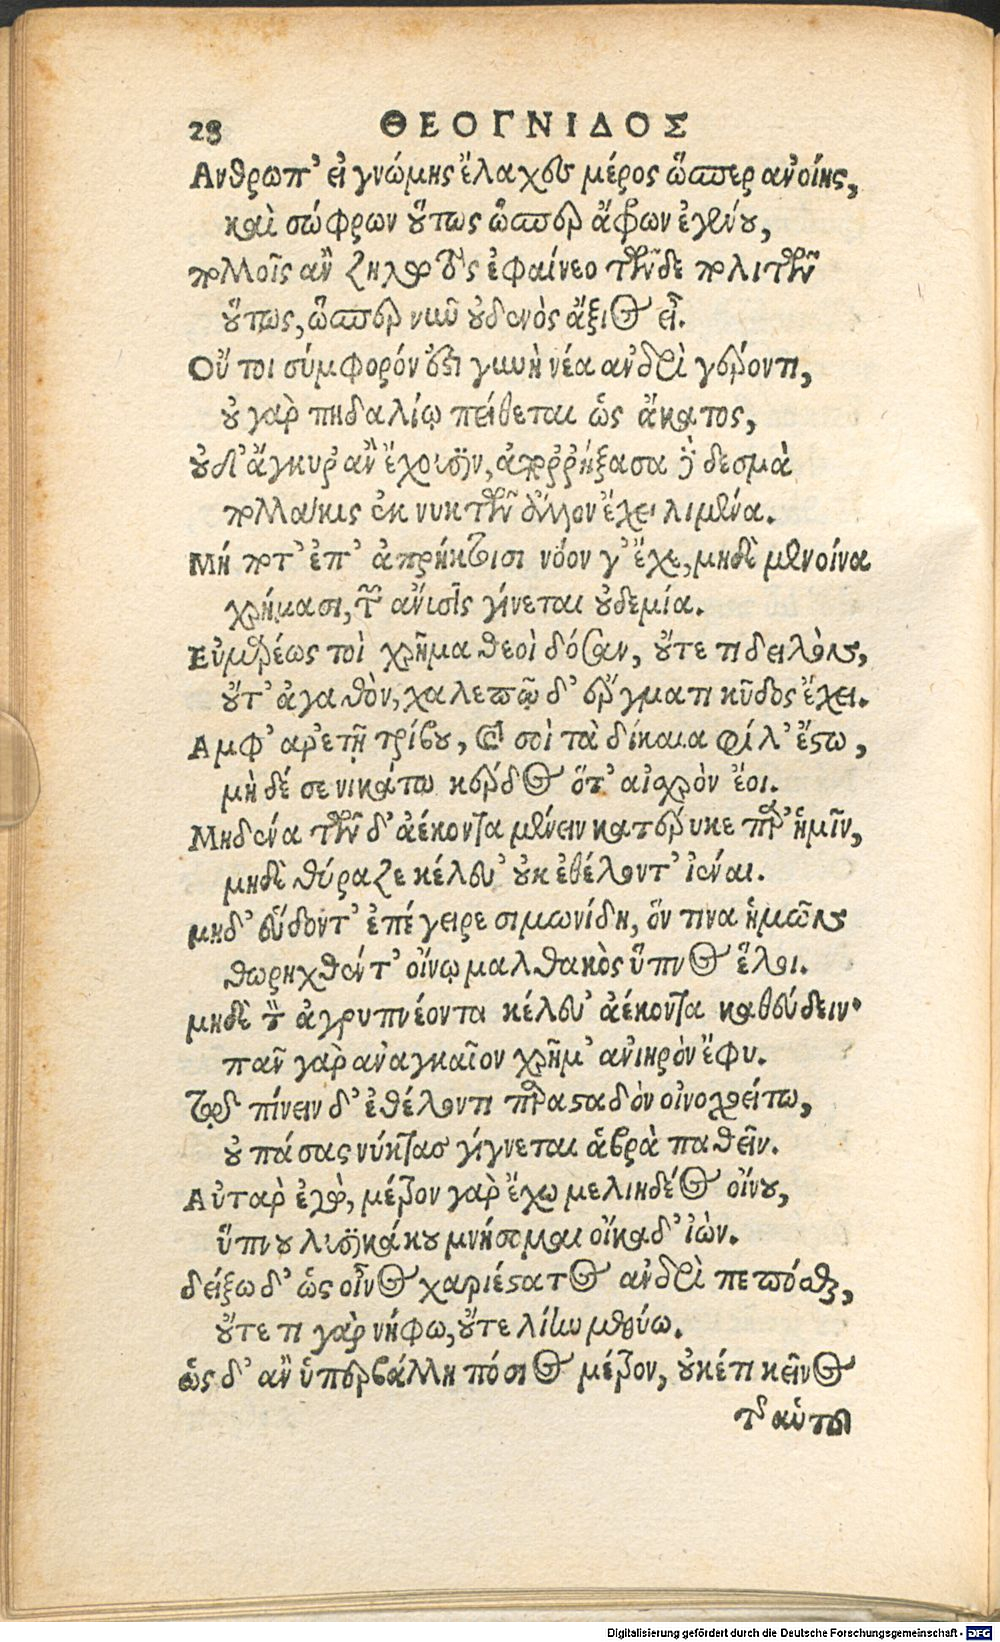 28 ΘΕΟΓΝΙΔΟΣ
Ανθρωπ' εἰ γνώμης ἔλαχες μέρος ὥσπερ ἀνοίης,
καὶ σώφρων οὕτως ὥσπερ ἄφρων ἐγένου,
πολλοῖς ἂν ζηλωτὸς ἐφαίνεο τῶνδε πολιτῶν
οὕτως, ὥσπερ νῦν οὐδενὸς ἄξιος εἶ.
Οὔ τοι σύμφορόν ἐστι γυνὴ νέα ἀνδρὶ γέροντι,
οὐ γὰρ πηδαλίῳ πείθεται ὡς ἄκατος,
οὐδ' ἄγκυραν ἔχουσιν, ἀπορρήξασα δὲ δεσμὰ
πολλάκις ἐκ νυκτῶν ἄλλον ἔχει λιμένα.
Μή ποτ' ἐπ' ἀπρήκτοισι νόον γ' ἔχε, μηδὲ μενοίνα
χρήμασι, τῶν ἄνυσις γίνεται οὐδεμία.
Εὐμαρέως τοὶ χρῆμα θεοὶ δόσαν, οὔτε τι δειλὸν,
οὔτ' ἀγαθὸν, χαλεπῷ δ' ἔργματι κῦδος ἔχει.
Αμφ' ἀρετῇ τρίβου, καὶ σοὶ τὰ δίκαια φίλ' ἔστω,
μὴ δέ σε νικάτω κέρδος ὅτ' αἰσχρὸν ἔοι.
Μηδένα τῶν δ' ἀέκοντα μένειν κατέρυκε παρ' ἡμῖν,
μηδὲ θύραζε κέλευ' οὐκ ἐθέλοντ' ἰέναι.
μηδ' εὕδοντ' ἐπέγειρε σιμωνίδη, ὅν τινα ἡμῶν
θωρηχθέντ' οἴνῳ μαλθακὸς ὕπνος ἕλοι.
μηδὲ τὸν ἀγρυπνέοντα κέλευ' ἀέκοντα καθεύδειν·
πᾶν γὰρ ἀναγκαῖον χρῆμ' ἀνιηρὸν ἔφυ.
Τῷ πίνειν δ' ἐθέλοντι παρασταδὸν οἰνοχοείτω,
οὐ πάσας νύκτας γίγνεται ἁβρὰ παθεῖν.
Αὐτὰρ ἐγὼ, μέτρον γὰρ ἔχω μελιηδέος οἴνου,
ὕπνου λυσικάκου μνήσομαι οἴκαδ' ἰὼν.
δείξω δ' ὡς οἶνος χαριέστατος ἀνδρὶ πεπόσθαι,
οὔτε τι γὰρ νήφω, οὔτε λίην μεθύω.
ὡς δ' ἂν ὑπερβάλλη πόσιος μέτρον, οὐκέτι κεῖνος
τῆς αὐτοῦ
Digitalisierung gefördert durch die Deutsche Forschungsgemeinschaft - DFG